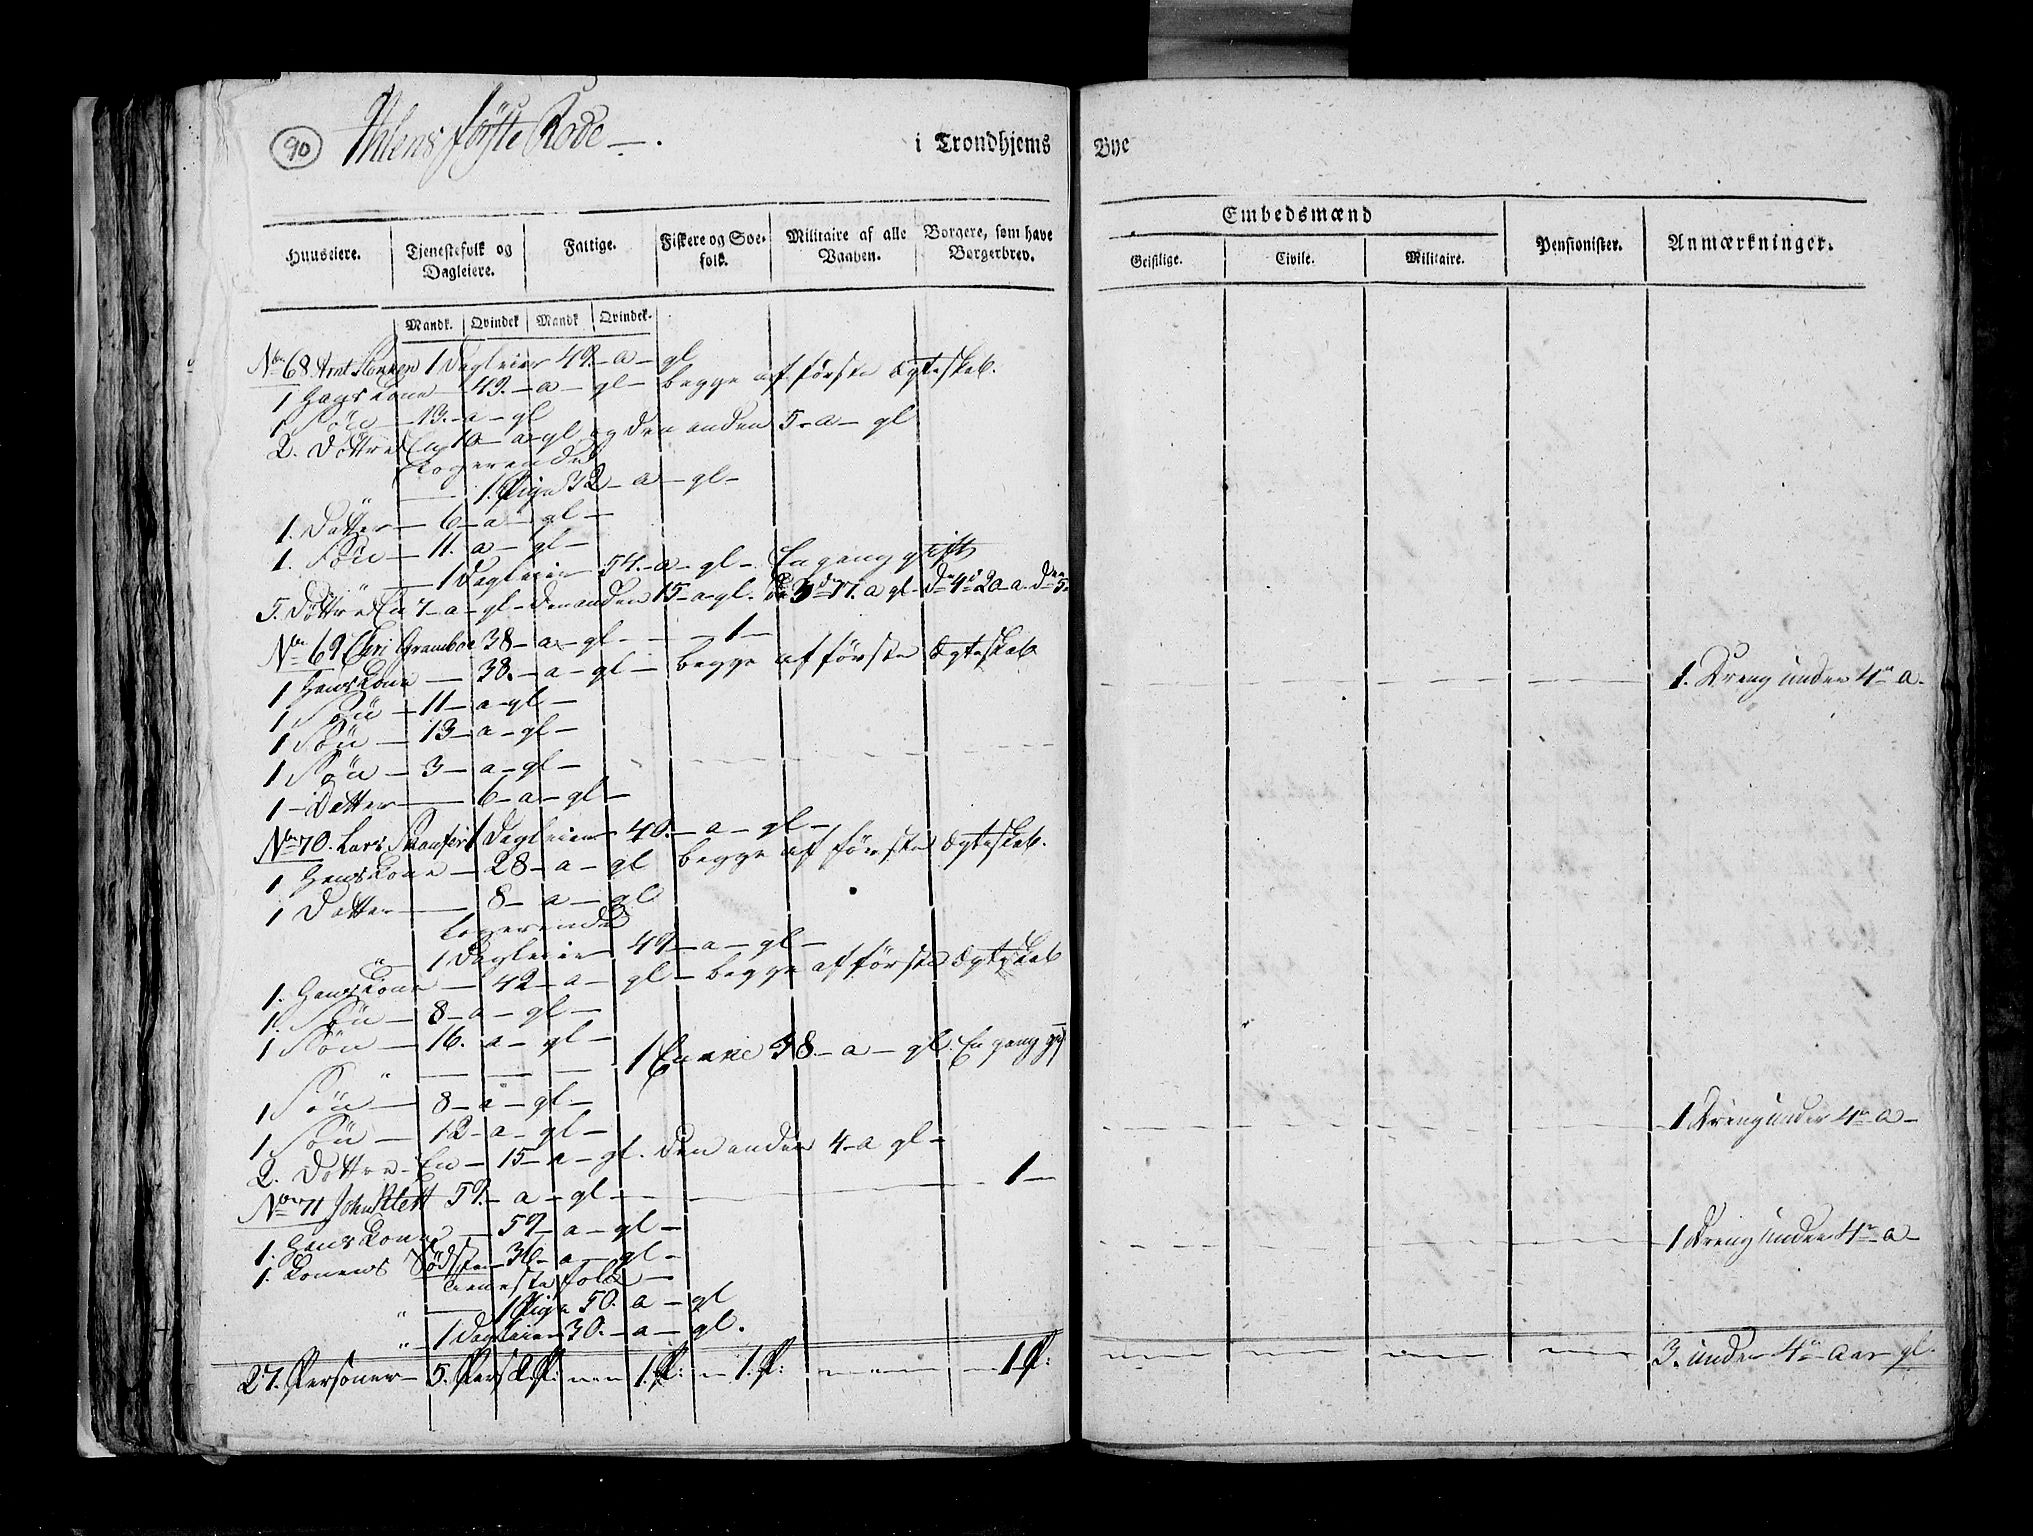 90 Ihlens første Rode i Trondhjems Bye
Huuseiere. Tjenestefolk og Dagleiere. Fattige. Fiskere og Søefolk. Militaire af alle Vaaben. Borgere, som have Borgerbrev. Embedsmænd Pensionister. Anmærkninger.
Geistlige. Civile. Militaire.
Mandk. Qvindek Mandk Qvindek.
No 68. 1 Dagleier 49 - a - gl
1 Hans Kone - 49. - a - gl - begge af første Ægteskab.
1 Søn - 13 - a - gl
2. Døttre En 10 - a - gl og den anden 5 - a - gl
Logerende
" — 1. Pige 32 - a - gl -
1. Datter - 6 - a - gl -
1. Søn - 11. a - gl -
" — 1 Dagleier 54. - a - gl - En gang gift
5. Døttre En 7 - a - gl - den anden 15 - a - gl.
No 69 38 - a - gl - - - 1 -
1 Hans Kone - 38. - a - gl - begge af første Ægteskab 1. Dreng under 4 - a -
1 Søn - 11 - a - gl -
1 Søn - 13 - a - gl -
1 Søn - 3 - a - gl -
1 - Datter - 6 - a - gl -
No 70. Lars 1 Dagleier - 40. - a - gl -
1 Hans Kone - 28 - a - gl begge af første Ægteskab.
1 Datter - 8 - a - gl
Logerende
" — 1 Dagleier 49 - a - gl -
1. Hans Kone - 42 - a - gl - begge af første Ægteskab
1. Søn - 8 - a - gl -
1 Søn - 16. a - gl -
" — 1 Enke 38 - a - gl. En gang
1 Søn - 8 - a - gl -
1 Søn - 12 - a - gl - 1 Dreng under 4 - a -
2. Døttre - En - 15 - a - gl. den anden 4 - a gl -
No 71 John 59 - a - gl - 1 -
1. Hans Kone - 59 - a - gl - 1 Dreng under 4 - a -
1. Konens 36 - a - gl -
Tienestefolk
" — 1 Pige 50. a - gl
" 1 Dagleier 30. - a - gl.
27. Personer - 5. Pers 2 P: 1. P: 1. P: 1 P: 3. under 4 Aar gl.